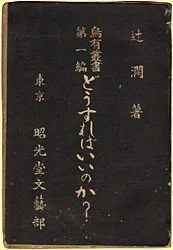 辻潤著
烏有叢書
第一編
どうすればいいのか？
東京 昭光堂文藝部